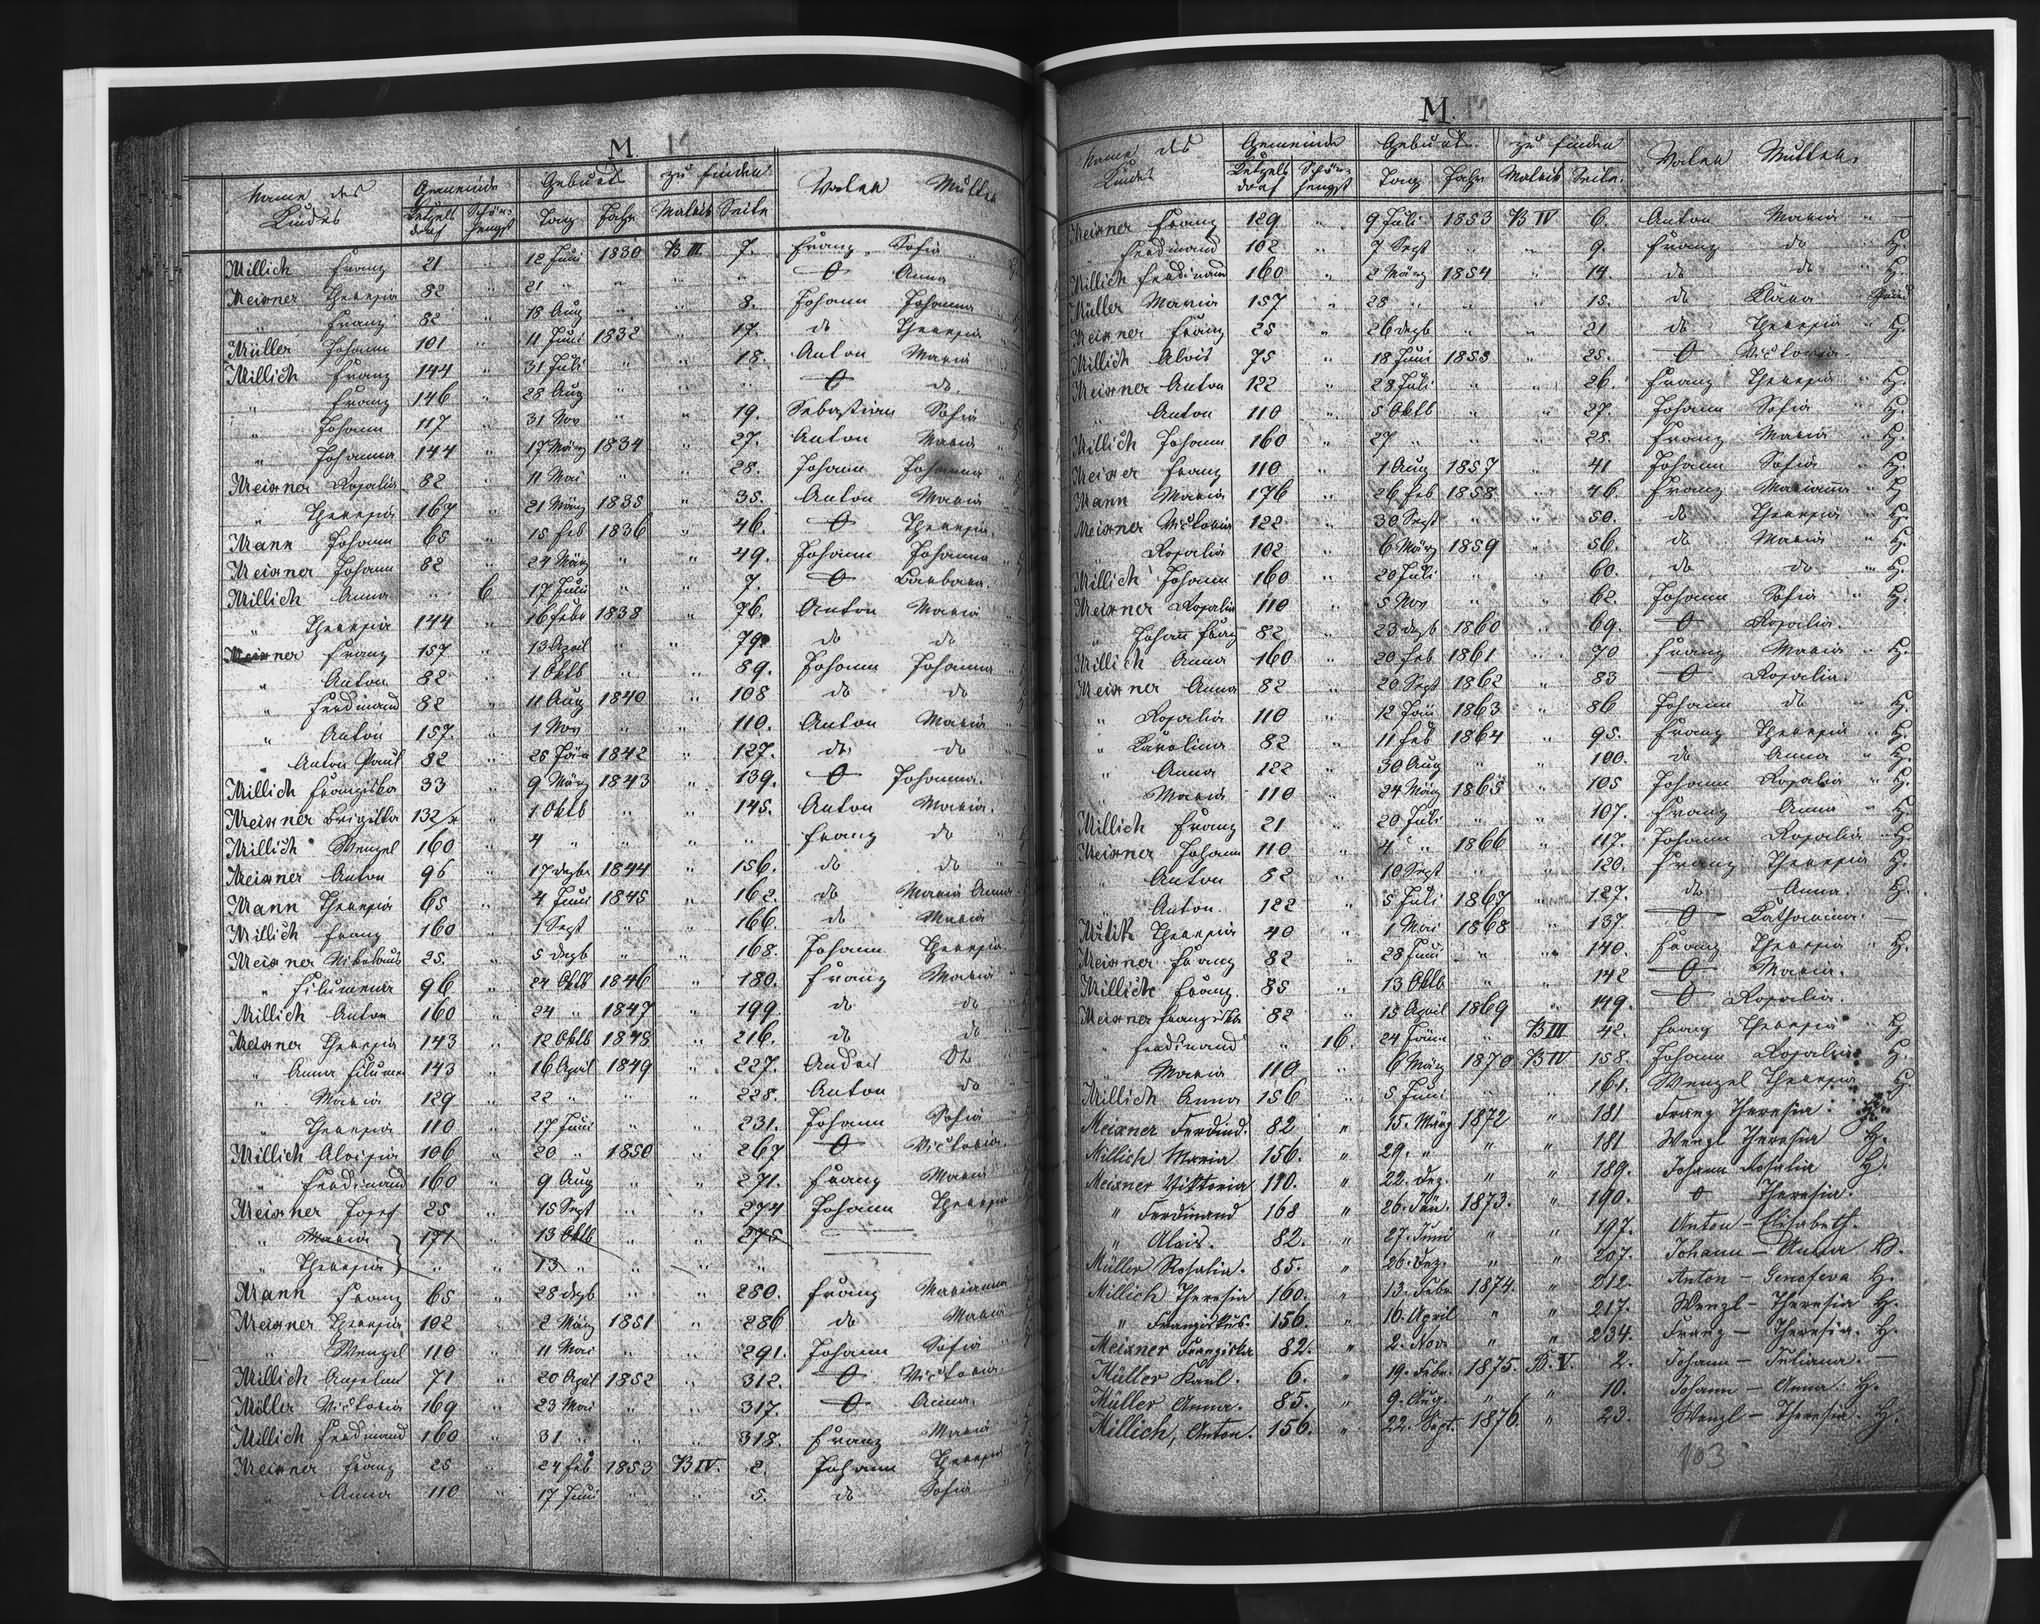 M.
Name des Kindes Gemeinde Geburts zu finden Vater Mutter
Ketzelsdorf Schönhengst Tag Jahr Matrik Seite
Millich Franz 21 " 12 Juni 1830 B III. 7. Franz Sofia
Meixner Theresia 82 " 21 " " " " O Anna
" Franz 82 " 18 Aug " " 8. Johann Johanna
Müller Johann 101 " 11 Juni 1832 " 17. do Theresia
Millich Franz 144 " 31 Juli " " 18. Anton Maria
" Franz 146 " 28 Aug " " " O do
" Johann 117 " 31 Nov " " 19. Sebastian Sofia
" Johanna 144 " 17 März 1834 " 27. Anton Maria
Meixner Rosalia 82 " 11 Mai " " 28. Johann Johanna
" Theresia 167 " 21 März 1835 " 35. Anton Maria
Mann Johann 65 " 15 Feb 1836 " 46. O Theresia
Meixner Johann 82 " 24 März " " 49. Johann Johanna
Millich Anna " 6 17 Juli " " 7. O Barbara
" Theresia 144 " 16 Febr 1838 " 76. Anton Maria
Meixner Franz 157 " 13 April " " 79. do do
" Anton 82 " 1 Oktb " " 89. Johann Johanna
" Ferdinand 82 " 11 Aug 1840 " 108 do do
" Anton 157. " 1 Nov " " 110. Anton Maria
" Anton Paul 82 " 26 Jän 1842 " 127. do do
Millich Franziska 33 " 9 März 1843 " 139. O Johanna.
Meixner Brigitta 132/2 " 1 Oktb " " 145. Anton Maria.
Millich Wenzel 160 " 4 " " " " Franz do
Meixner Anton 96 " 17 dezbr 1844 " 156. do do
Mann Theresia 65 " 4 Juni 1845 " 162. do Maria Anna
Millich Franz 160 " 1 Sept " " 166. do Maria
Meixner Nikolaus 25. " 5 dezb " " 168. Johann Theresia
" Filumena 96 " 24 Oktb 1846 " 180. Franz Maria
Millich Anton 160 " 24 " 1847 " 199. do do
Meixner Theresia 143 " 12 Oktb 1848 " 216. do do
" Anna Filumen 143 " 16 April 1849 " 227. Andres do
" Maria 129 " 22 " " " 228. Anton do
" Theresia 110 " 17 Juni " " 231. Johann Sofia
Millich Aloisia 106 " 20 " 1850 " 267 O Victoria.
" Ferdinand 160 " 9 Aug " " 271. Franz Maria
Meixner Josef 25 " 15 Sept " " 274 Johann Theresia
" Maria 171 " 13 Oktb " " 275
" Theresia " " 13 " " " "
Mann Franz 65 " 28 dezb " " 280. Franz Marianna
Meixner Theresia 102 " 2 März 1851 " 286 do Maria
" Wenzel 110 " 11 Mai " " 291. Johann Sofia
Millich 71 " 20 April 1852 " 312. O Victoria
Müller Victoria 169 " 23 Mai " " 317. O Anna.
Millich Ferdinand 160 " 31 " " " 318. Franz Maria
Meixner Franz 25 " 24 Feb 1853 B IV. 2. Johann Theresia
" Anna 110 " 17 Juni " " 5. do Sofia
M.
Name des Kindes Gemeinde Geburts zu finden Vater Mutter.
Ketzelsdorf Schönhengst Tag Jahr Matrik Seite.
Meixner Franz 129 " 9 Juli 1853 B IV 6. Anton Maria " —
" Ferdinand 102 " 7 Sept " " 9. Franz do " H.
Millich Ferdinand 160 " 2 März 1854 " 14. do do " H.
Müller Maria 157 " 28 " " " 15. do Klara
Meixner Franz 25 " 26 dezb " " 21 do Theresia " H.
Millich Alois 75 " 18 Juni 1855 " 25. O Victoria.
Meixner Anton 122 " 28 Juli " " 26. Franz Theresia " H.
" Anton 110 " 5 Oktb " " 27. Johann Sofia " H.
Millich Johann 160 " 27 " " " 28. Franz Maria " H.
Meixner Franz 110 " 1 Aug 1857 " 41 Johann Sofia " H.
Mann Maria 176 " 26 Feb 1858 " 46. Franz Marianna " H
Meixner Victoria 122 " 30 Sept " " 50. do Theresia " H.
" Rosalia 102 " 6 März 1859 " 56. do Maria " H.
Millich Johann 160 " 20 Juli " " 60. do do " H.
Meixner Rosalia 110 " 5 Nov " " 62. Johann Sofia " H.
" Johann Franz 82 " 23 dezb 1860 " 69. O Rosalia.
Millich Anna 160 " 20 Feb 1861 " 70 Franz Maria " H.
Meixner Anna 82 " 20 Sept 1862 " 83 O Rosalia.
" Rosalia 110 " 12 Jän 1863 " 86 Johann do " H.
" Karolina 82 " 11 Feb 1864 " 95. Franz Theresia " H.
" Anna 122 " 30 Aug " " 100. do Anna " H.
" Maria 110 " 24 März 1865 " 105 Johann Rosalia " H.
Millich Franz 21 " 20 Juli " " 107. Franz Anna " H.
Meixner Johann 110 " 4 " 1866 " 117. Johann Rosalia " H.
" Anton 82 " 10 Sept " " 120. Franz Theresia H.
" Anton. 122 " 5 Juli 1867 " 127. do Anna. H.
Mülik Theresia 40 " 1 Mai 1868 " 137. O Catharina. —
Meixner Franz 82 " 28 Juni " " 140. Franz Theresia " H.
Millich Franz. 85 " 13 Oktb " " 142 O Maria.
Meixner Franziska 82 " 15 April 1869 " 149. O Rosalia.
" Ferdinand " 16. 24 Jänn " B III 42. Franz Theresia " H.
" Maria 110 " 6 März 1870 B IV 158. Johann Rosalia H.
Millich Anna 156 " 5 Juni " " 161. Wenzel Theresia H
Meixner Ferdind. 82 " 15. März 1872 " 181 Franz Theresia.
Millich Maria 156. " 29. " " " 181 Wenzl Theresia H.
Meixner Viktoria 110. " 22. Dez. " " 189. Johann Rosalia H.
" Ferdinand 168 " 26. Jän. 1873. " 190. O Theresia.
" Alois. 82. " 27. Juni " " 197. Anton – Elisabeth.
Müller Rosalia. 85. " 26. Dez. " " 207. Johann – Anna H.
Millich Theresia 160. " 13. Febr. 1874. " 212. Anton – Genofeva H.
" Franziskus. 156. " 16. April " " 217. Wenzl – Theresia H.
Meixner Franziska 82. " 2. Nov. " " 234. Franz – Theresia. H.
Müller Karl. 6. " 19. Febr. 1875. B. V. 2. Johann – Juliana. —
Müller Anna. 85. " 9. Aug. " " 10. Johann – Anna. H.
Millich, Anton. 156. " 22. Sept. 1876. " 23. Wenzl – Theresia. H.
103